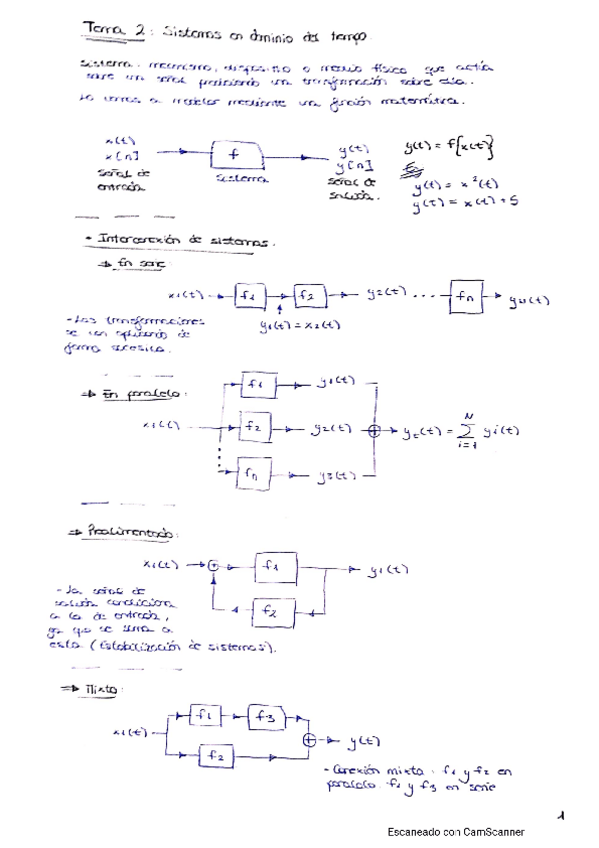 Tema 2: Sistemas en dominio del tiempo.
Sistema: mecanismo, dispositivo o medio físico que actúa
sobre una señal produciendo una transformación sobre ella.
Lo vamos a modelar mediante una función matemática.
x(t)
x[n]
señal de
entrada
f
sistema
y(t)
y[n]
señal de
salida.
y(t) = f{x(t)}
y(t) = x²(t)
y(t) = x(t) + 5
• Interconexión de sistemas.
⇒ En serie:
x1(t)
f1
f2
y2(t) ...
fn
yn(t)
y1(t) = x2(t)
- Las transformaciones
se van aplicando de
forma sucesiva.
⇒ En paralelo:
x1(t)
f1
y1(t)
f2
y2(t)
fn
y3(t)
+
yt(t) = N Σ i=1 yi(t)
⇒ Realimentado:
x1(t)
+
f1
y1(t)
f2
- La señal de
salida condiciona
a la de entrada,
ya que se suma a
esta (Estabilización de sistemas).
⇒ Mixto:
x1(t)
f1
f3
f2
+
y(t)
- Conexión mixta: f1 y f2 en
paralelo. f1 y f3 en serie
1
Escaneado con CamScanner